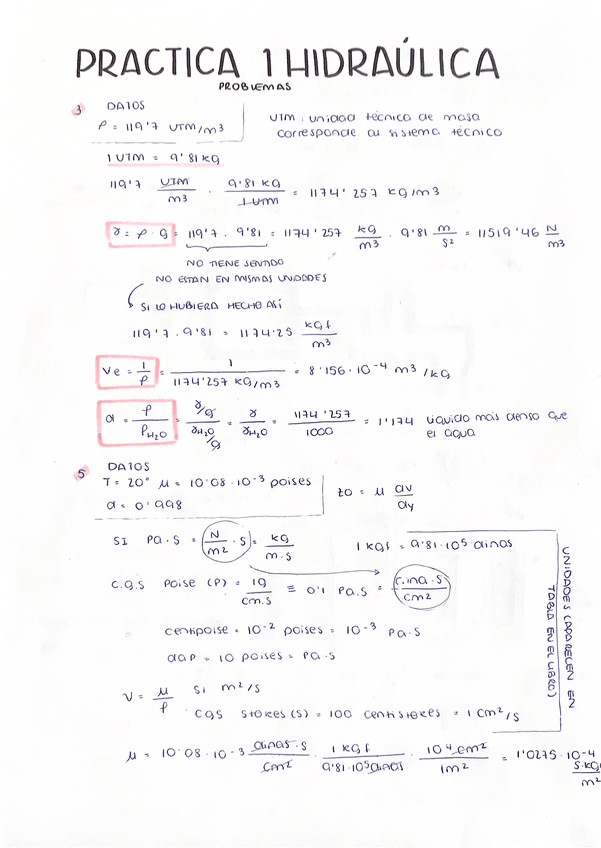 PRACTICA 1 HIDRAÚLICA
PROBLEMAS
3 DATOS
ρ = 119'7 UTM/m3
UTM: unidad técnica de masa
corresponde al sistema técnico
1 UTM = 9'81 kg
119'7 UTM/m3 · 9'81 kg/1 UTM = 1174'257 kg/m3
γ = ρ · g = 119'7 · 9'81 = 1174'257 kg/m3 · 9'81 m/s2 = 11519'46 N/m3
NO TIENE SENTIDO
NO ESTAN EN MISMAS UNIDADES
SI LO HUBIERA HECHO ASÍ
119'7 · 9'81 = 1174'25 kgf/m3
Ve = 1/ρ = 1/1174'257 kg/m3 = 8'156·10-4 m3/kg
d = ρ/ρH2O = γ/g/γH2O/g = γ/γH2O = 1174'257/1000 = 1'174 liquido más denso que
el agua
5 DATOS
T = 20° μ = 10'08·10-3 poises
d = 0'998
τo = μ dv/dy
SI Pa·s = N/m2 · s = kg/m·s
1 kgf = 9'81·105 dinas
C.G.S Poise (P) = 1g/cm·s ≡ 0'1 Pa·s = dina·s/cm2
centipoise = 10-2 poises = 10-3 Pa·s
dap = 10 poises = Pa·s
UNIDADES (APARECEN EN
TABLA EN EL LIBRO)
V = μ/ρ SI m2/s
CGS Stokes (S) = 100 centistokes = 1 cm2/s
μ = 10'08·10-3 dinas·s/cm2 · 1 kgf/9'81·105 dinas · 104 cm2/1m2 = 1'0275·10-4 s·kg/m2